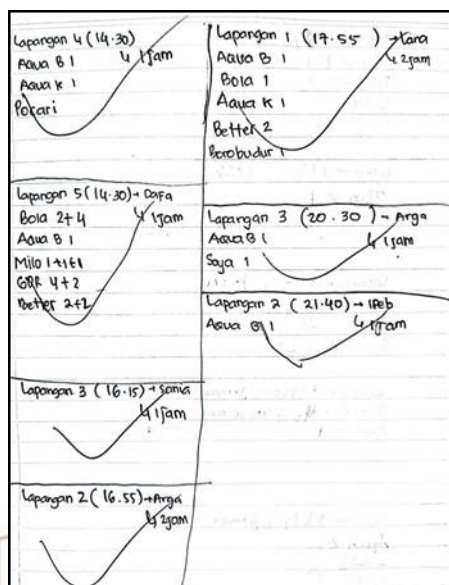 Lapangan 4 (14.30)
Aqua B 1 ↳ 1 jam
Aqua K 1
Pocari
Lapangan 5 (14.30) → Dafa
Bola 2+4 ↳ 1jam
Aqua B 1
Milo 1+1+1
4+2
Better 2+2
Lapangan 3 (16.15) → Sonia
↳ 1jam
Lapangan 2 (16.55) → Arga
↳ 2jam
Lapangan 1 (17.55) → Tara
Aqua B 1 ↳ 2jam
Bola 1
Aqua K 1
Better 2
Borobudur 1
Lapangan 3 (20.30) → Arga
Aqua B 1 ↳ 1jam
Soya 1
Lapangan 2 (21.40) → Peb
Aqua B 1 ↳ 1jam